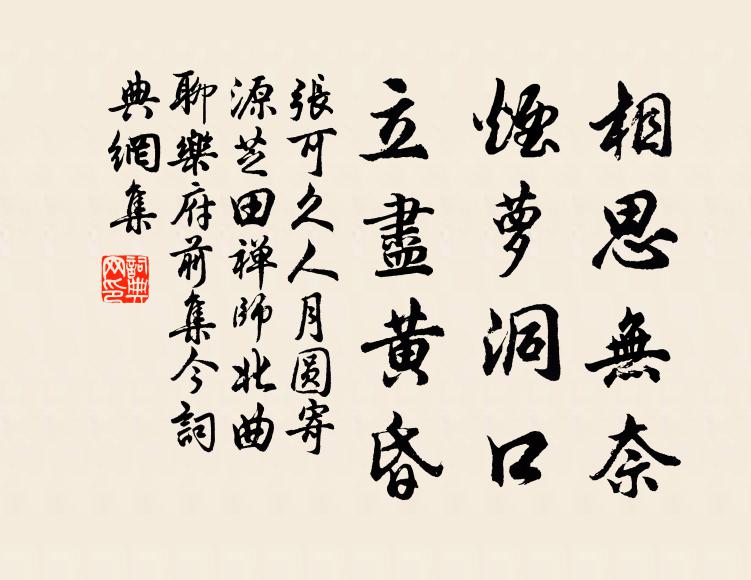 相思無奈
煙萝洞口
立盡黃昏
張可久人月圆寄
源芝田禅師北曲
聊樂府前集今詞
典網集
詞典
网印